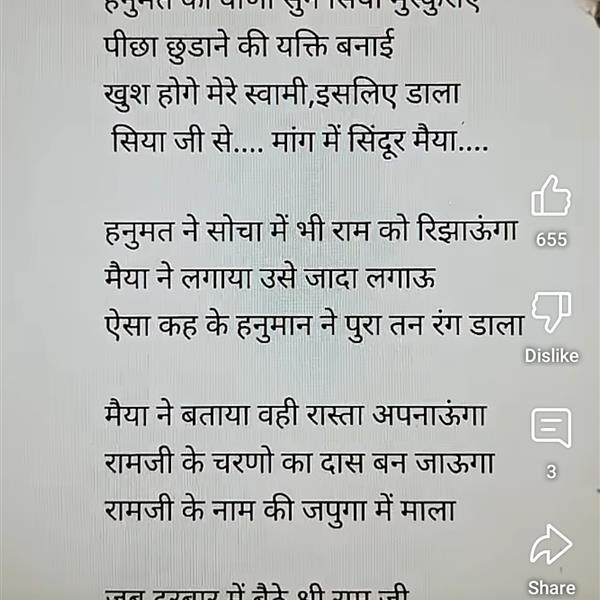 पीछा छुडाने की यक्ति बनाई
खुश होगे मेरे स्वामी,इसलिए डाला
सिया जी से.... मांग में सिंदूर मैया....
हनुमत ने सोचा में भी राम को रिझाऊंगा
मैया ने लगाया उसे जादा लगाऊ
ऐसा कह के हनुमान ने पुरा तन रंग डाला
मैया ने बताया वही रास्ता अपनाऊंगा
रामजी के चरणो का दास बन जाऊगा
रामजी के नाम की जपुगा में माला
655
Dislike
3
Share